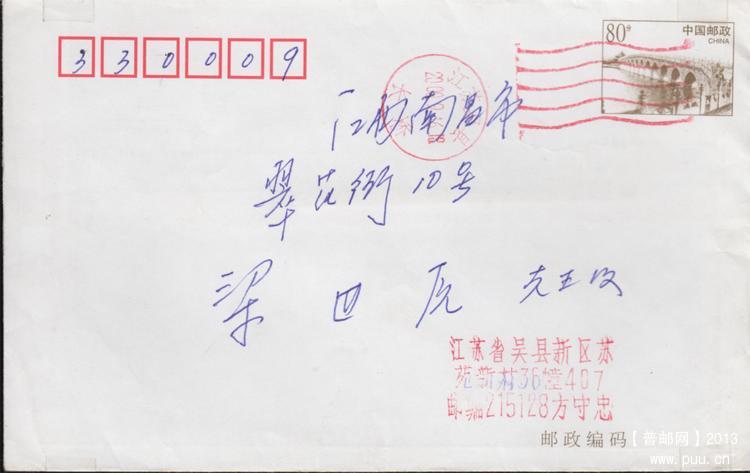 330009
80分 中国邮政
CHINA
江西南昌市
翠花街10号
梁世虎 先生收
江苏省吴县新区苏
苑新村36幢407
邮编215128方守忠
邮政编码
【普邮网】2013
www.puu.cn